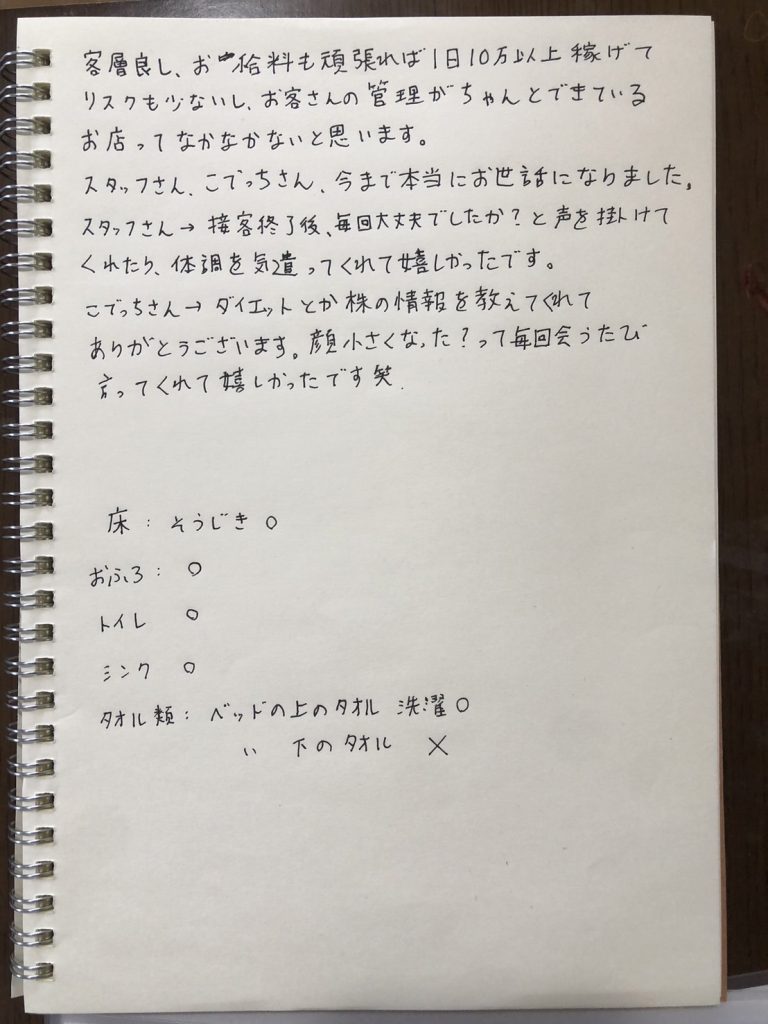 客層良し、お給料も頑張れば1日10万以上稼げて
リスクも少ないし、お客さんの管理がちゃんとできている
お店ってなかなかないと思います。
スタッフさん、こでっちさん、今まで本当にお世話になりました。
スタッフさん→接客終了後、毎回大丈夫でしたか?と声を掛けて
くれたり、体調を気遣ってくれて嬉しかったです。
こでっちさん→ダイエットとか株の情報を教えてくれて
ありがとうございます。顔小さくなった?って毎回会うたび
言ってくれて嬉しかったです笑.
床:そうじき○
おふろ:○
トイレ ○
シンク ○
タオル類:ベッドの上のタオル 洗濯○
〃 下のタオル ×